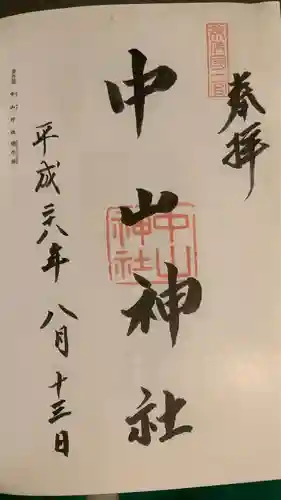 奉拝
美作国一宮
中山神社
中山
神社
平成二十八年八月十三日